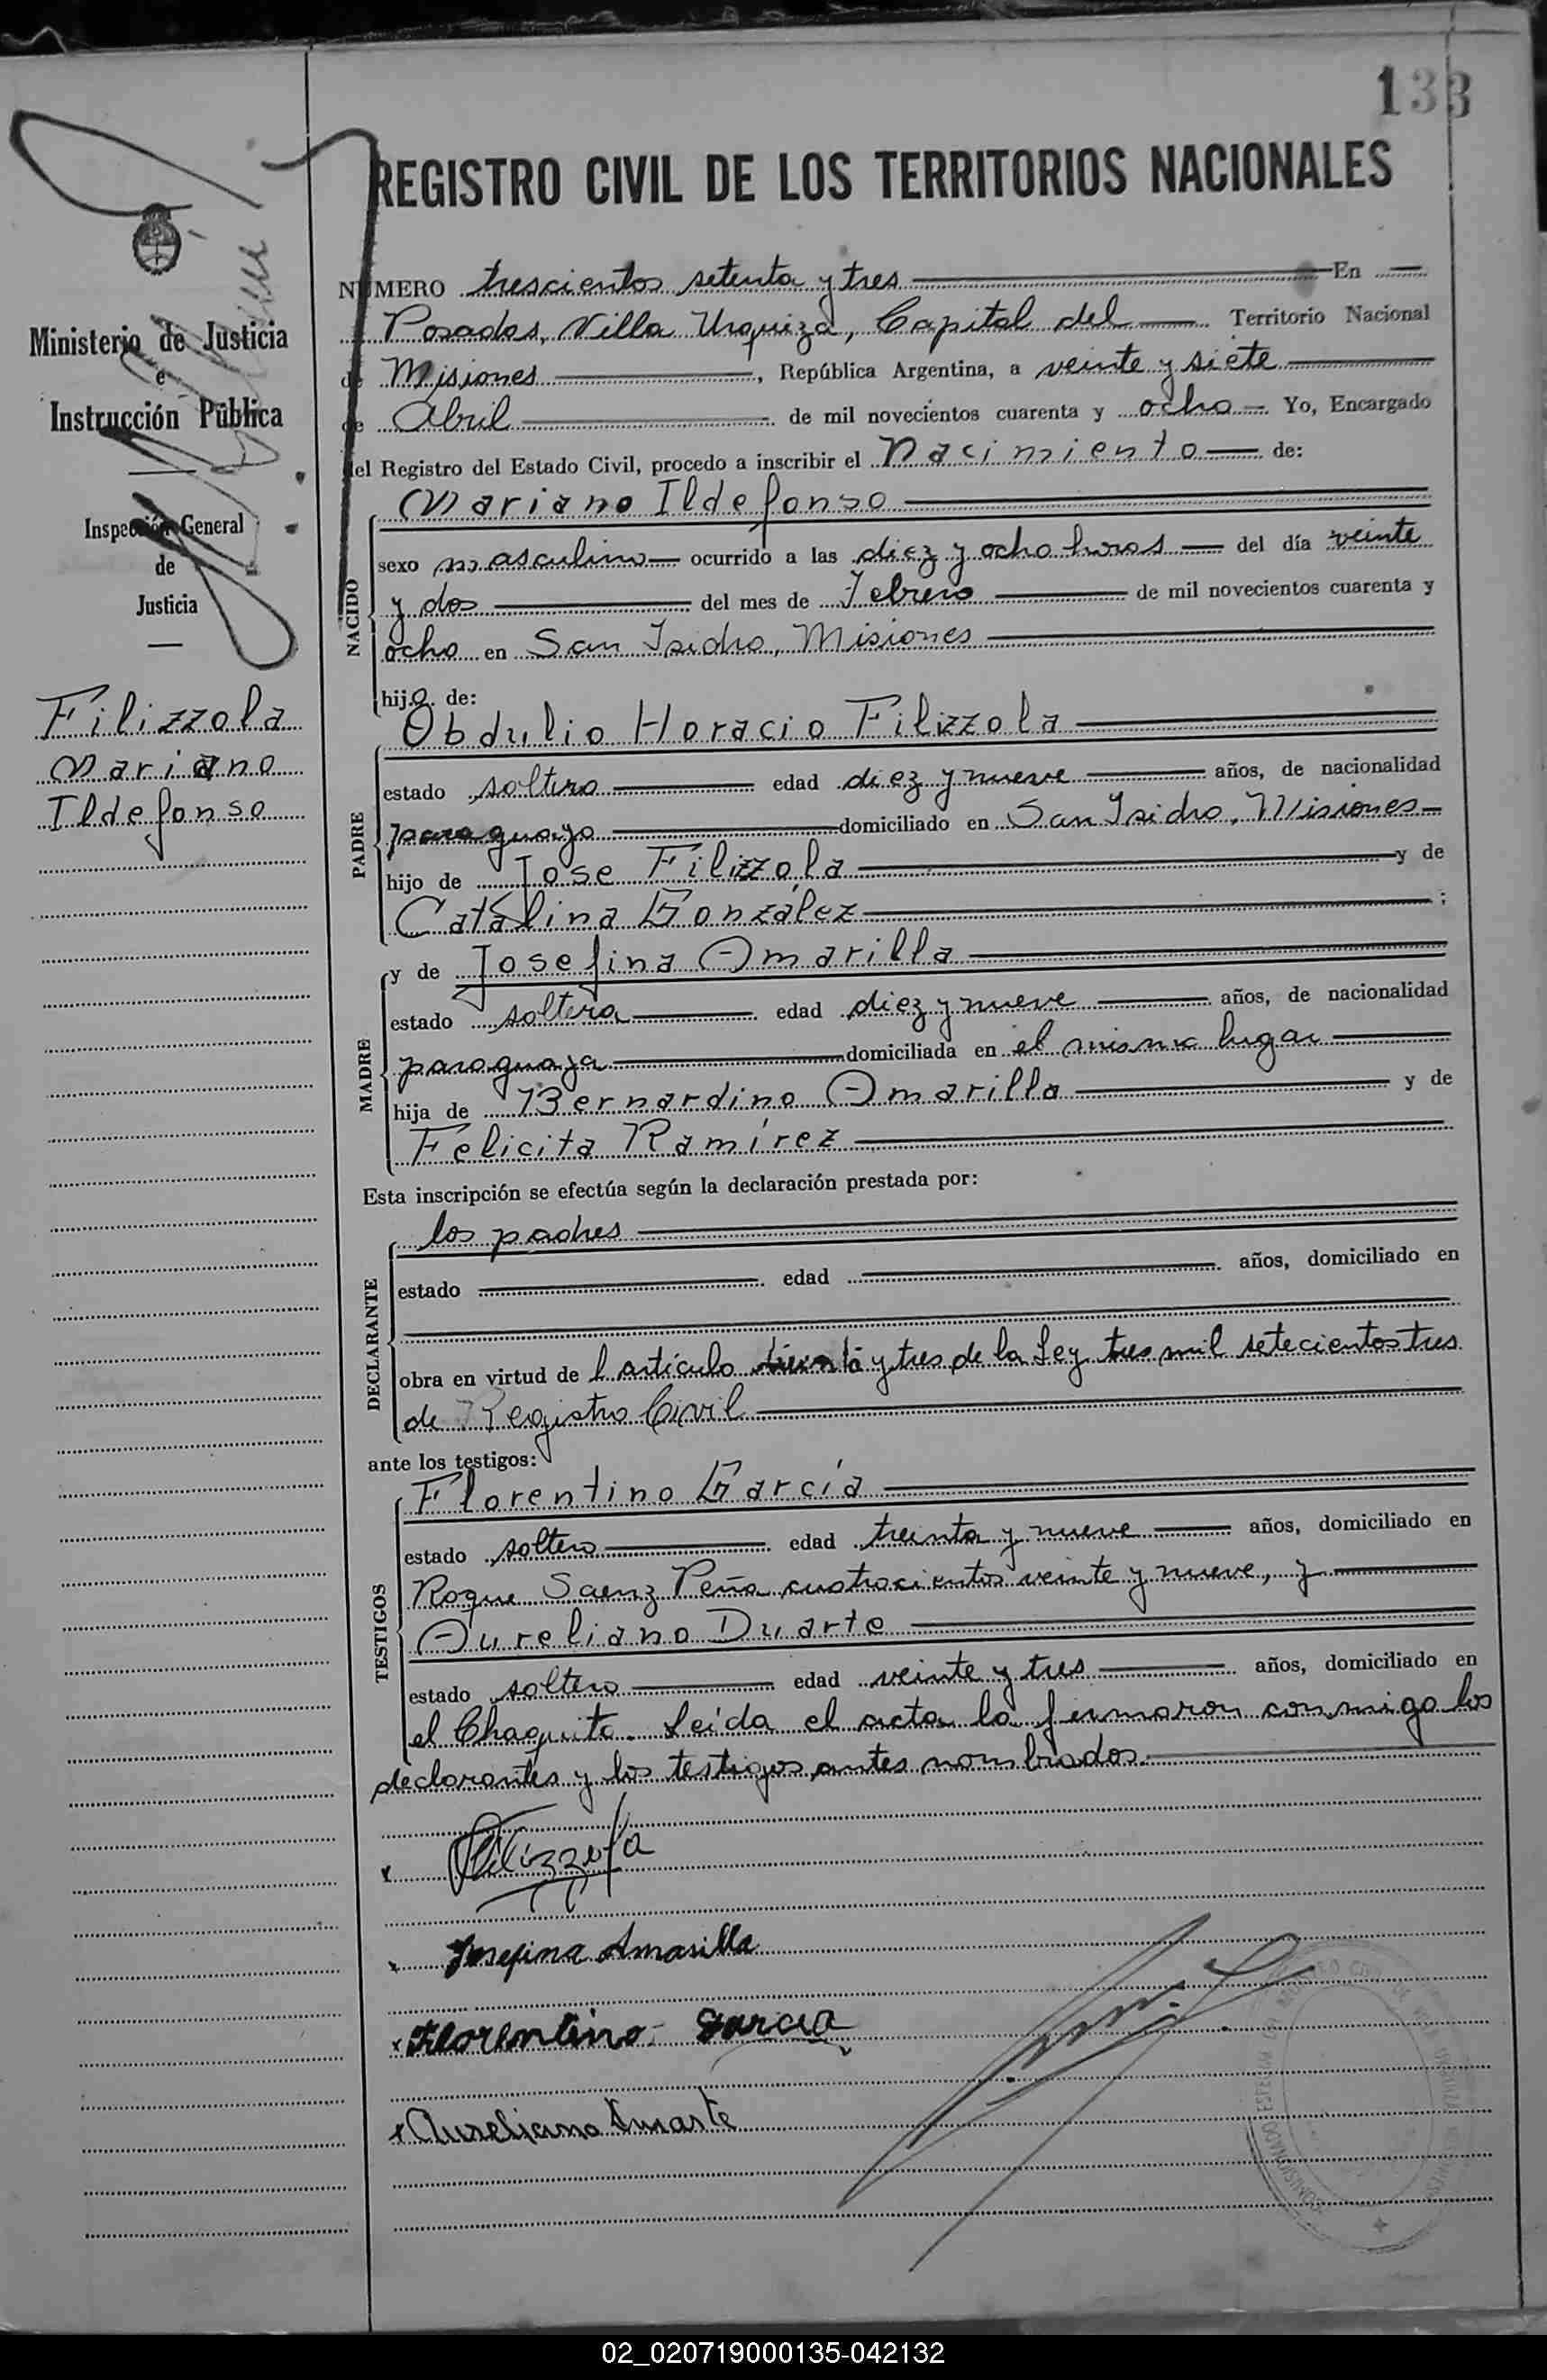 133
REGISTRO CIVIL DE LOS TERRITORIOS NACIONALES
Ministerio de Justicia
e
Instrucción Pública
Inspección General
de
Justicia
Filizzola
Mariano
Ildefonso
NÚMERO trescientos setenta y tres En
Posadas, Villa Urquiza, Capital del Territorio Nacional
de Misiones, República Argentina, a veinte y siete
de Abril de mil novecientos cuarenta y ocho Yo, Encargado
del Registro del Estado Civil, procedo a inscribir el Nacimiento de:
NACIDO
Mariano Ildefonso
sexo masculino ocurrido a las diez y ocho horas del día veinte
y dos del mes de Febrero de mil novecientos cuarenta y
ocho en San Isidro, Misiones
hijo de:
PADRE
Obdulio Horacio Filizzola
estado soltero edad diez y nueve años, de nacionalidad
paraguayo domiciliado en San Isidro, Misiones
hijo de José Filizzola y de
Catalina González ;
MADRE
y de Josefina Amarilla
estado soltera edad diez y nueve años, de nacionalidad
paraguaya domiciliada en el mismo lugar
hija de Bernardino Amarilla y de
Felicita Ramírez
Esta inscripción se efectúa según la declaración prestada por:
DECLARANTE
los padres
estado edad años, domiciliado en
obra en virtud de l artículo treinta y tres de la Ley tres mil setecientos tres
de Registro Civil
ante los testigos:
TESTIGOS
Florentino García
estado soltero edad treinta y nueve años, domiciliado en
Roque Saenz Peña cuatrocientos veinte y nueve, y
Aureliano Duarte
estado soltero edad veinte y tres años, domiciliado en
el Chaquito. Leída el acta la firmaron conmigo los
declarantes y los testigos antes nombrados.
x Filizzola
x Josefina Amarilla
x Florentino Garcia
x Aureliano Duarte
02_020719000135-042132